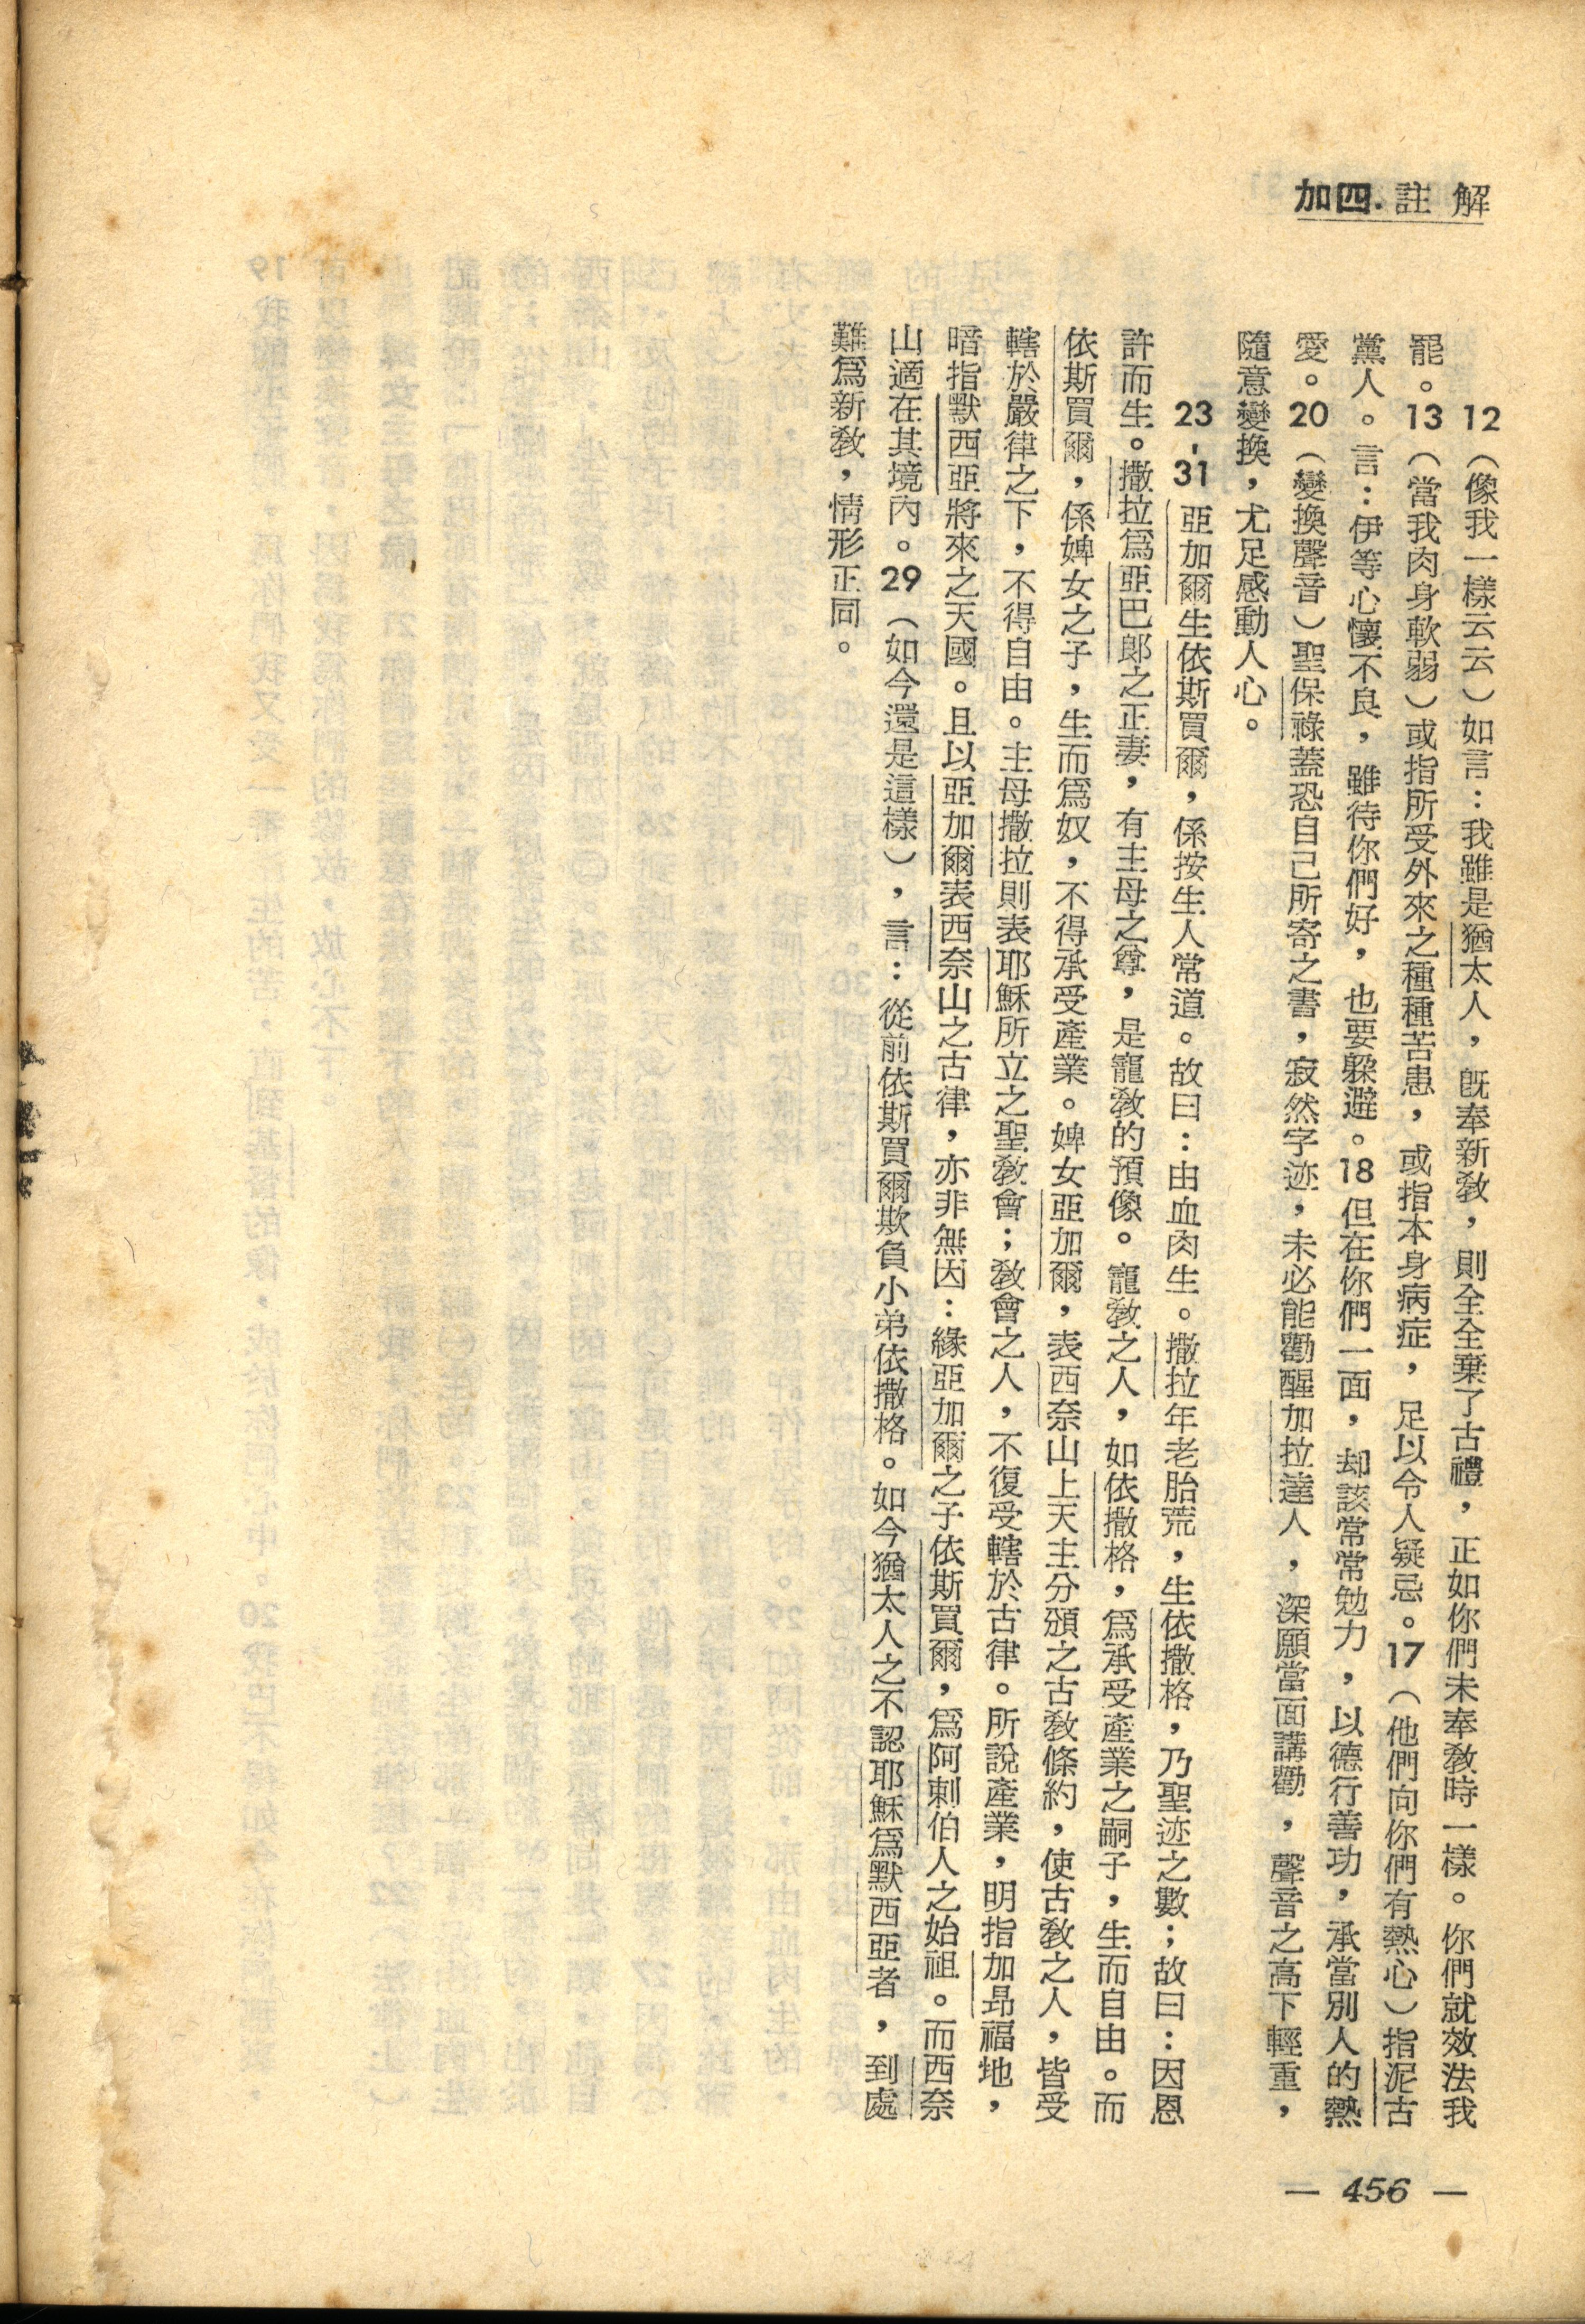 加四．註解
12（像我一樣云云）如言：我雖是猶太人，旣奉新敎，則全全棄了古禮，正如你們未奉敎時一樣。你們就效法我
罷。13（當我肉身軟弱）或指所受外來之種種苦患，或指本身病症，足以令人疑忌。17（他們向你們有熱心）指泥古
黨人。言：伊等心懷不良，雖待你們好，也要躱避。18但在你們一面，却該常常勉力，以德行善功，承當別人的熱
愛。20（變換聲音）聖保祿蓋恐自己所寄之書，寂然字迹，未必能勸醒加拉達人，深願當面講勸，聲音之高下輕重，
隨意變換，尤足感動人心。
23-31亞加爾生依斯買爾，係按生人常道。故曰：由血肉生。撒拉年老胎荒，生依撒格，乃聖迹之數；故曰：因恩
許而生。撒拉爲亞巴郎之正妻，有主母之尊，是寵敎的預像。寵敎之人，如依撒格，爲承受產業之嗣子，生而自由。而
依斯買爾，係婢女之子，生而爲奴，不得承受產業。婢女亞加爾，表西奈山上天主分頒之古敎條約，使古敎之人，皆受
轄於嚴律之下，不得自由。主母撒拉則表耶穌所立之聖敎會；敎會之人，不復受轄於古律。所說產業，明指加昂福地，
暗指默西亞將來之天國。且以亞加爾表西奈山之古律，亦非無因：緣亞加爾之子依斯買爾，爲阿剌伯人之始祖。而西奈
山適在其境內。29（如今還是這樣），言：從前依斯買爾欺負小弟依撒格。如今猶太人之不認耶穌爲默西亞者，到處
難爲新敎，情形正同。
— 456 —